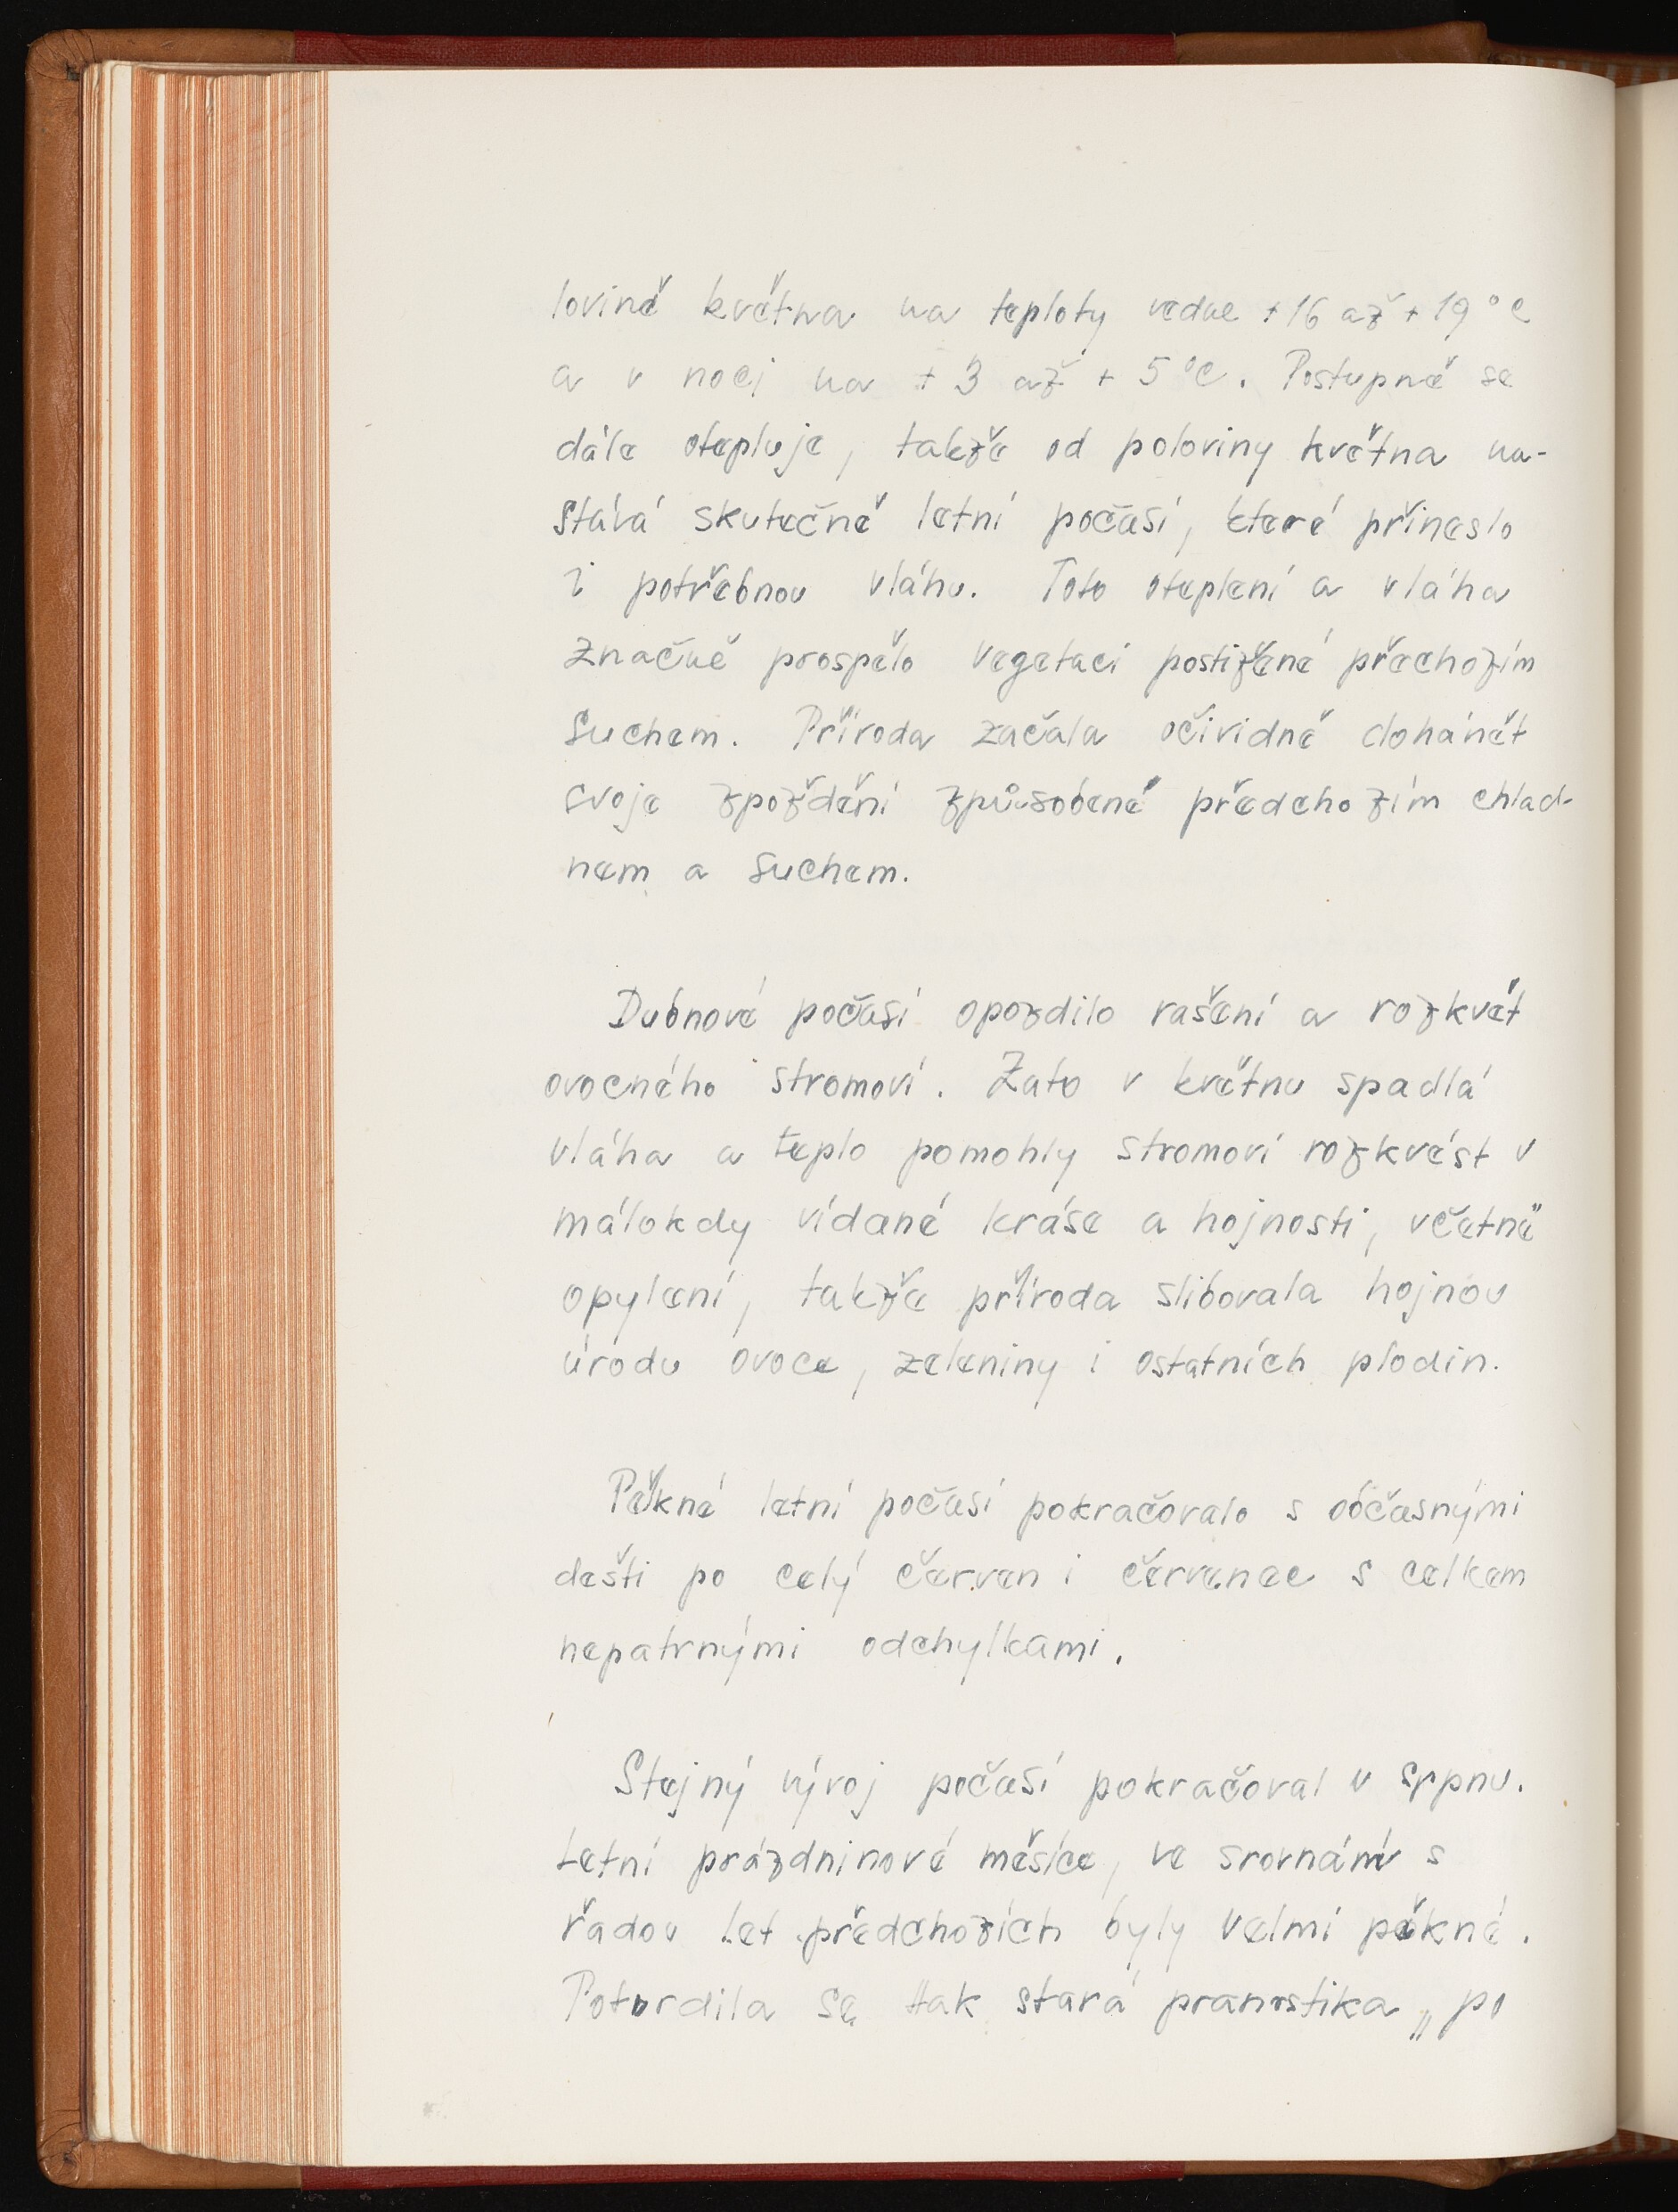 lovině května na teploty vedne +16 až +19°C
a v noci na +3 až +5°C. Postupně se
dále otepluje, takže od poloviny května na-
stává skutečně letní počasí, které přineslo
i potřebnou vláhu. Toto oteplení a vláha
značně prospělo vegetaci postižené přechozím
suchem. Příroda začala očividně dohánět
svoje zpoždění způsobené předchozím chlad-
nem a suchem.
Dubnové počasí opozdilo rašení a rozkvět
ovocného stromoví. Zato v květnu spadlá
vláha a teplo pomohly stromoví rozkvést v
málokdy vídané kráse a hojnosti, včetně
opylení, takže příroda slibovala hojnou
úrodu ovoce, zeleniny i ostatních plodin.
Pěkné letní počasí pokračovalo s občasnými
dešti po celý červen i červenec s celkem
nepatrnými odchylkami.
Stejný vývoj počasí pokračoval v srpnu.
Letní prázdninové měsíce, ve srovnání s
řadou let předchozích byly velmi pěkné.
Potvrdila se tak stará pranostika „po